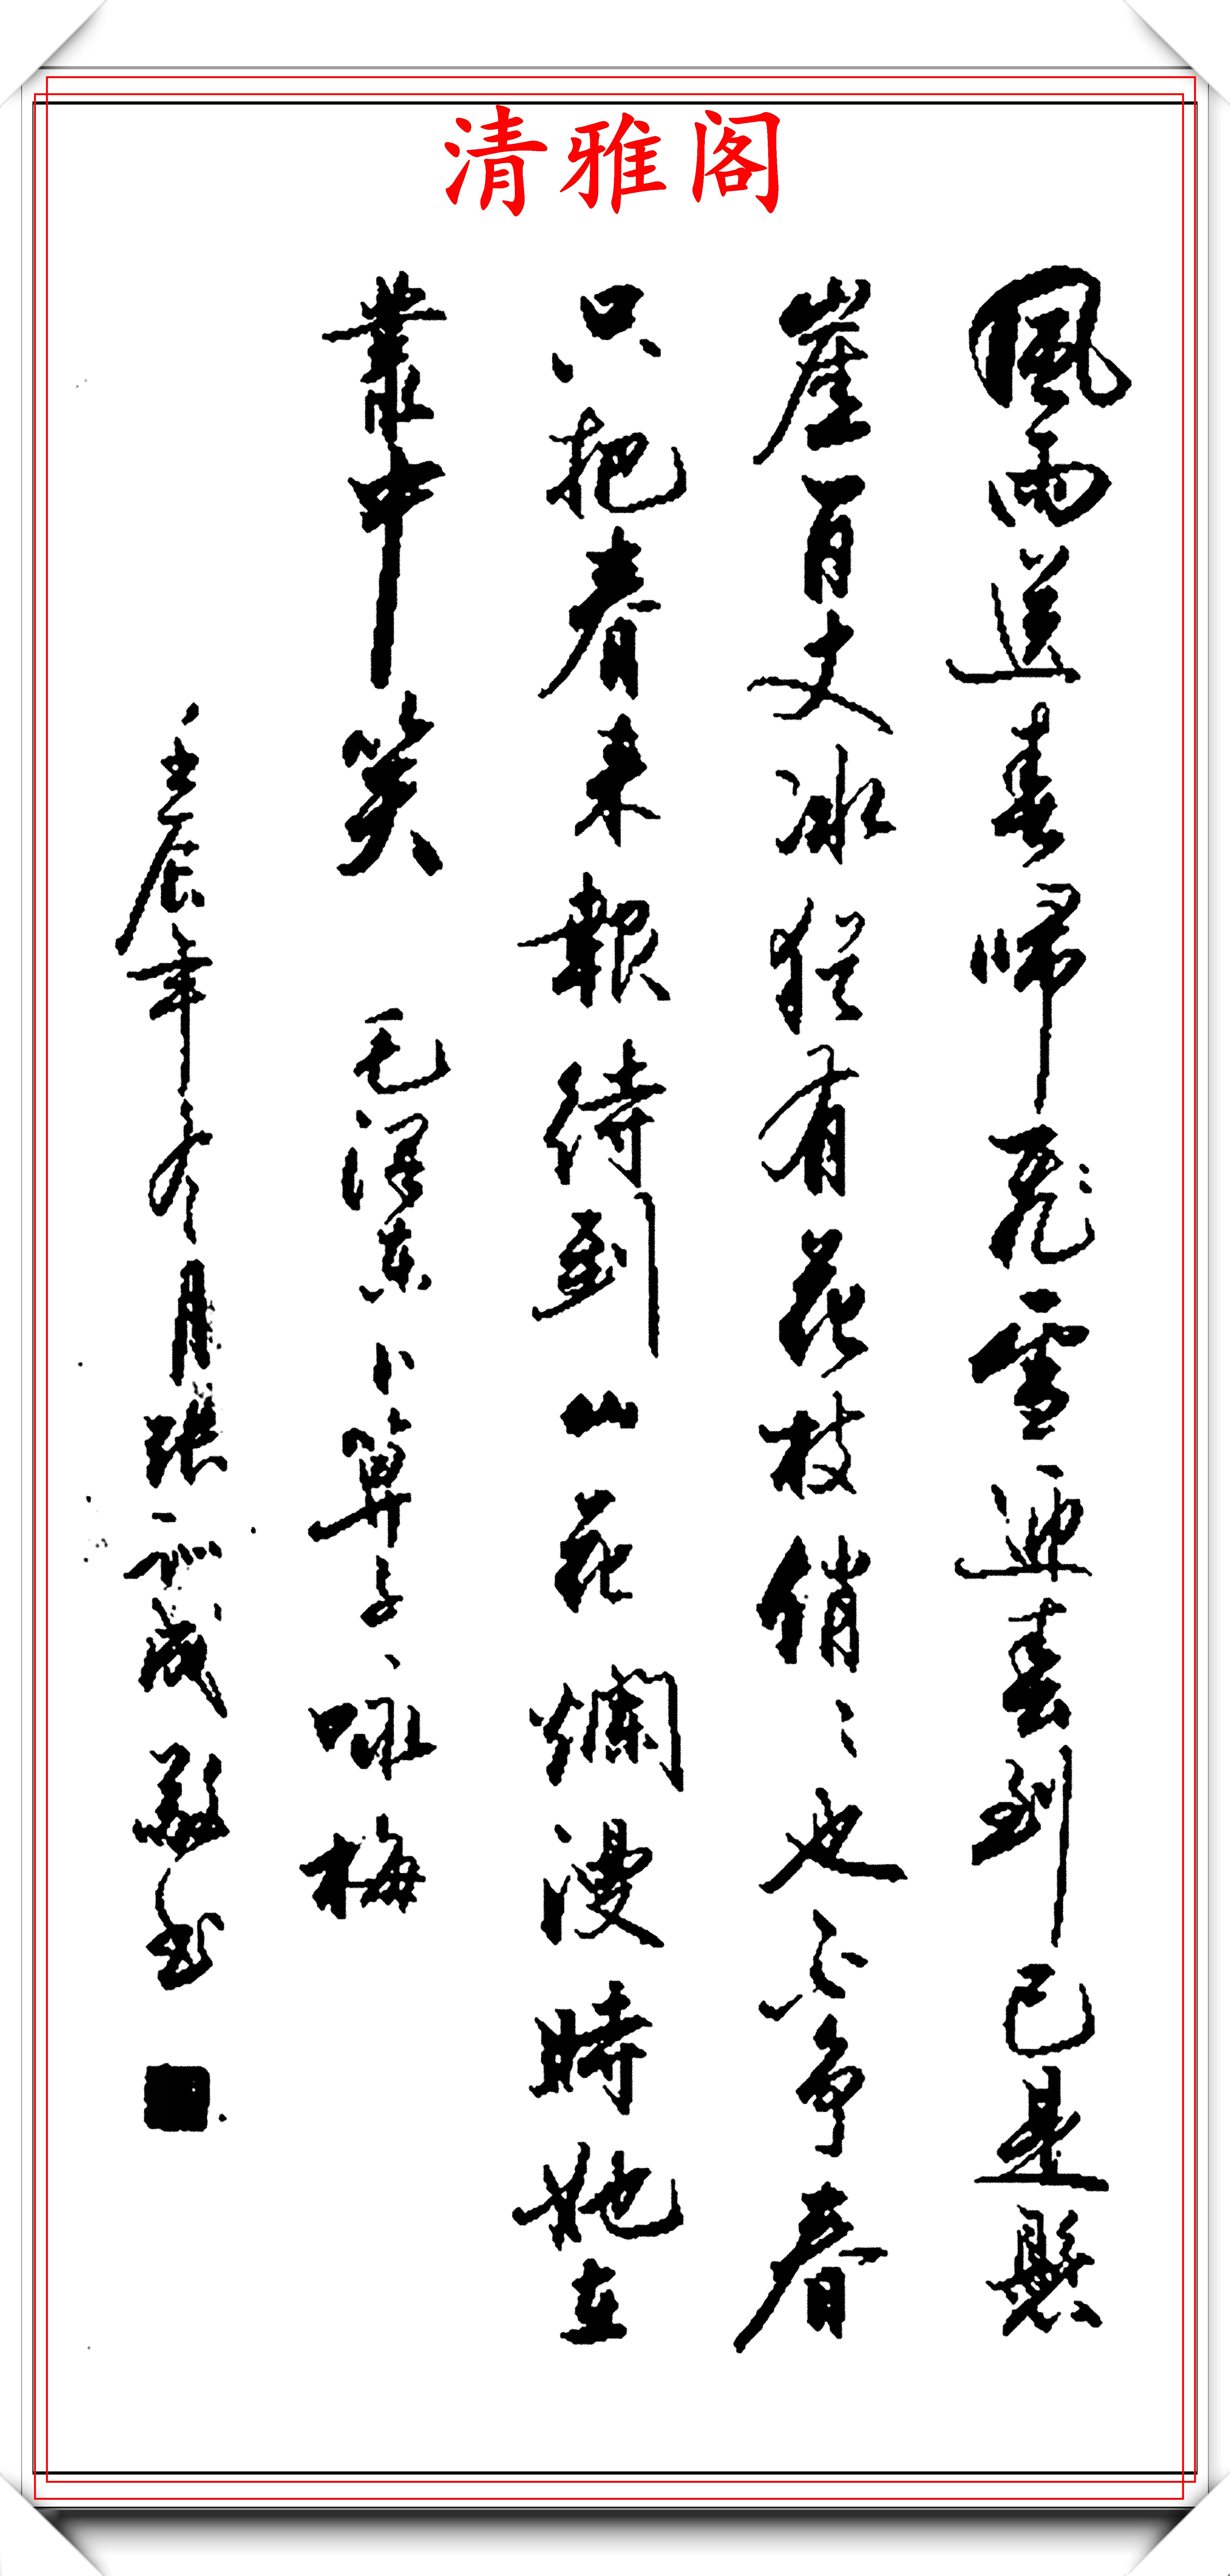 清雅阁
風雨送春歸飛雪迎春到已是懸
崖百丈冰猶有花枝俏〻也不爭春
只把春来報待到山花爛漫時她在
叢中笑 毛澤东卜算子、咏梅
壬辰年冬月張訓成敬书